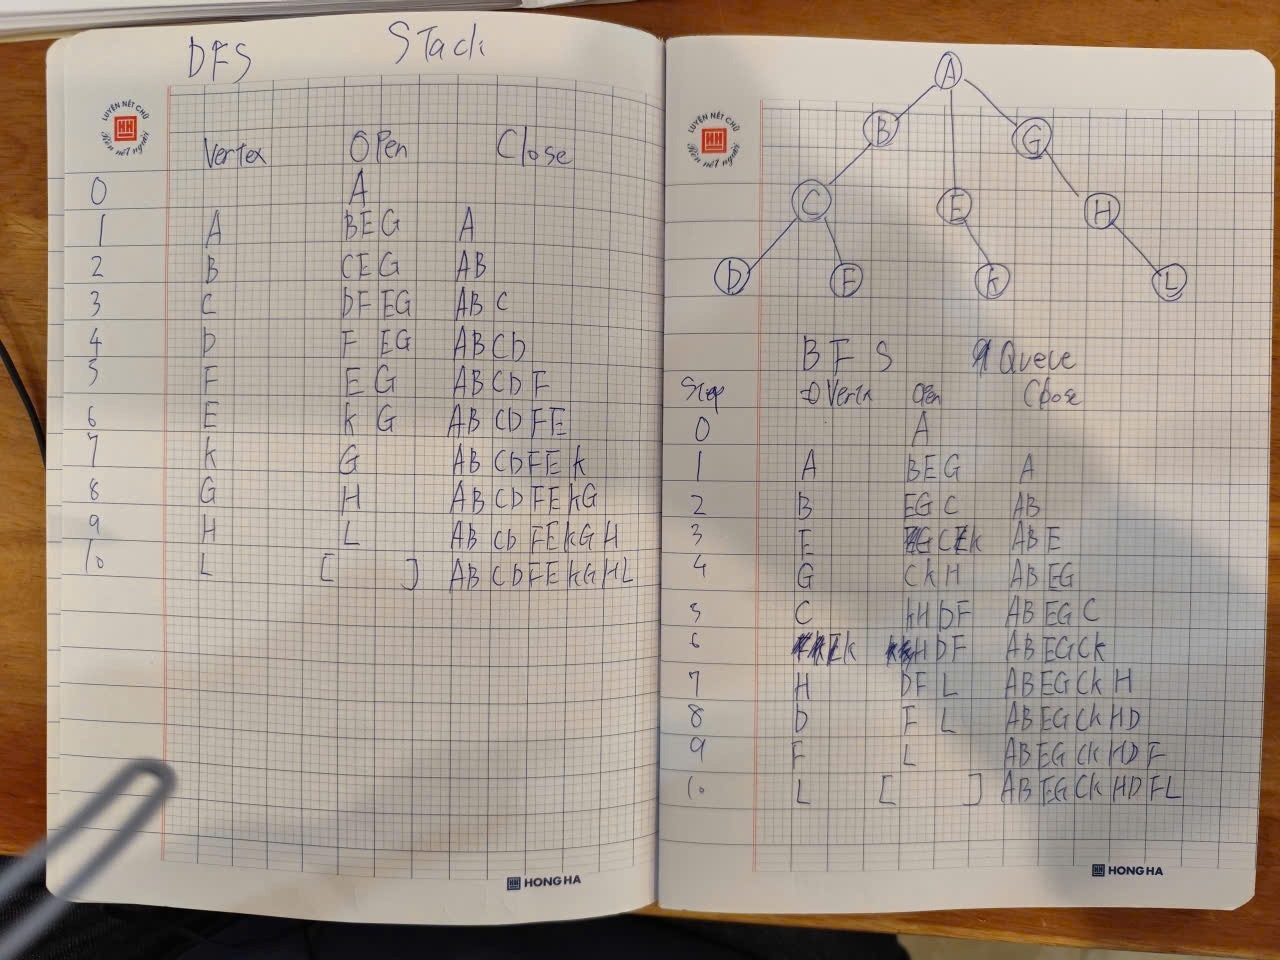 DFS STack
LUYỆN NÉT CHỮ
HH
Rèn nết người
Vertex OPen Close
0 A
1 A BEG A
2 B CEG AB
3 C DF EG ABC
4 D F EG ABCD
5 F E G ABCDF
6 E K G ABCDFE
7 K G ABCDFEK
8 G H ABCDFEKG
9 H L ABCDFEKGH
10 L [ ] ABCDFEKGHL
HONG HA
A
LUYỆN NÉT CHỮ
HH
Rèn nết người
B G
C E H
D F K L
BFS Queue
Step Vertx OPen Close
0 A
1 A BEG A
2 B EGC AB
3 E GCK ABE
4 G CKH ABEG
5 C KHDF ABEGC
6 K HDF ABEGCK
7 H DFL ABEGCKH
8 D F L ABEGCKHD
9 F L ABEGCKHDF
10 L [ ] ABEGCKHDFL
HONG HA